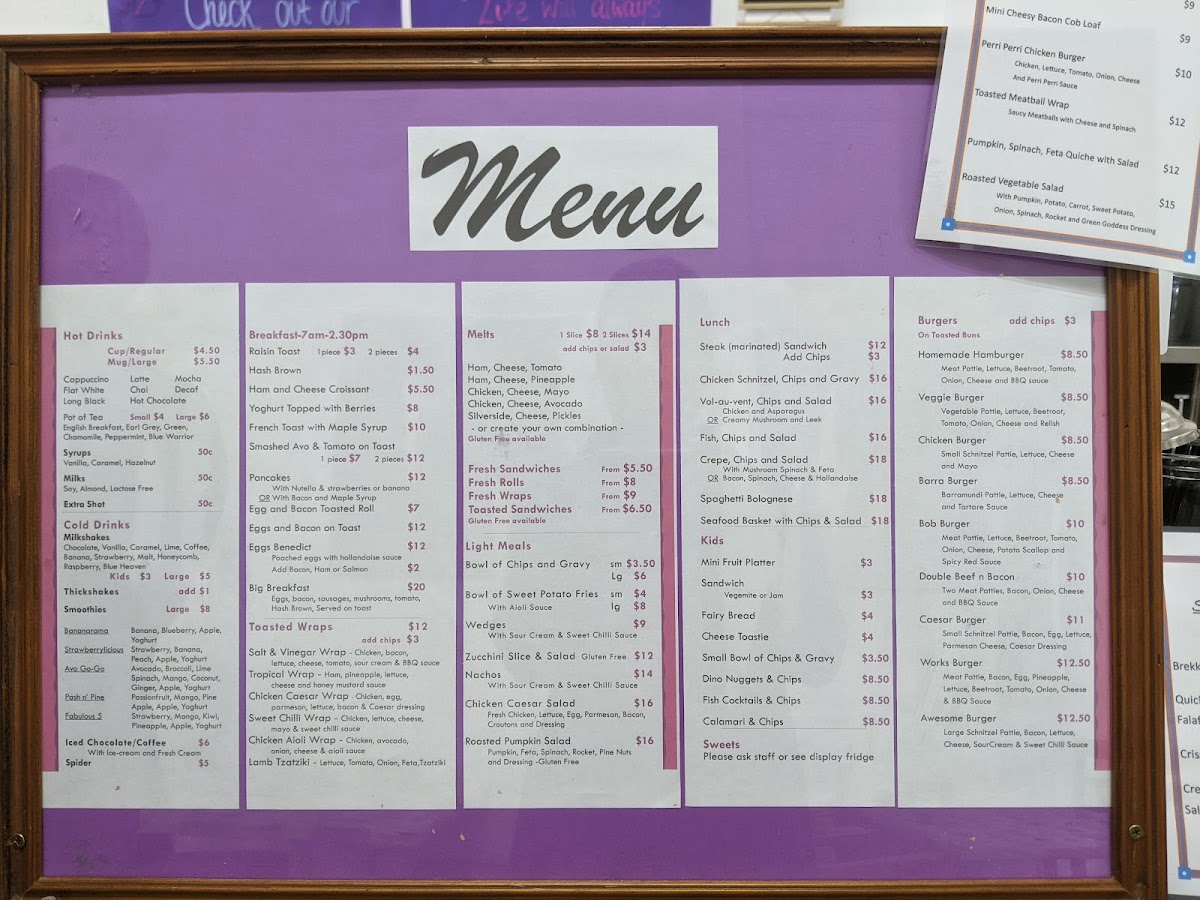 Check out our
Live will always
$9
Mini Cheesy Bacon Cob Loaf
$9
Perri Perri Chicken Burger $10
Chicken, Lettuce, Tomato, Onion, Cheese
And Perri Perri Sauce
Toasted Meatball Wrap $12
Saucy Meatballs with Cheese and Spinach
Pumpkin, Spinach, Feta Quiche with Salad $12
Roasted Vegetable Salad $15
With Pumpkin, Potato, Carrot, Sweet Potato,
Onion, Spinach, Rocket and Green Goddess Dressing
Menu
Hot Drinks
Cup/Regular $4.50
Mug/Large $5.50
Cappuccino Latte Mocha
Flat White Chai Decaf
Long Black Hot Chocolate
Pot of Tea Small $4 Large $6
English Breakfast, Earl Grey, Green,
Chamomile, Peppermint, Blue Warrior
Syrups 50c
Vanilla, Caramel, Hazelnut
Milks 50c
Soy, Almond, Lactose Free
Extra Shot 50c
Cold Drinks
Milkshakes
Chocolate, Vanilla, Caramel, Lime, Coffee,
Banana, Strawberry, Malt, Honeycomb,
Raspberry, Blue Heaven
Kids $3 Large $5
Thickshakes add $1
Smoothies Large $8
Bananarama Banana, Blueberry, Apple,
Yoghurt
Strawberrylicious Strawberry, Banana,
Peach, Apple, Yoghurt
Avo Go-Go Avocado, Broccoli, Lime
Spinach, Mango, Coconut,
Ginger, Apple, Yoghurt
Pash n' Pine Passionfruit, Mango, Pine
Apple, Apple, Yoghurt
Fabulous 5 Strawberry, Mango, Kiwi,
Pineapple, Apple, Yoghurt
Iced Chocolate/Coffee $6
With Ice-cream and Fresh Cream
Spider $5
Breakfast-7am-2.30pm
Raisin Toast 1piece $3 2 pieces $4
Hash Brown $1.50
Ham and Cheese Croissant $5.50
Yoghurt Topped with Berries $8
French Toast with Maple Syrup $10
Smashed Avo & Tomato on Toast
1 piece $7 2 pieces $12
Pancakes $12
With Nutella & strawberries or banana
OR With Bacon and Maple Syrup
Egg and Bacon Toasted Roll $7
Eggs and Bacon on Toast $12
Eggs Benedict $12
Poached eggs with hollandaise sauce
Add Bacon, Ham or Salmon $2
Big Breakfast $20
Eggs, bacon, sausages, mushrooms, tomato,
Hash Brown, Served on toast
Toasted Wraps $12
add chips $3
Salt & Vinegar Wrap - Chicken, bacon,
lettuce, cheese, tomato, sour cream & BBQ sauce
Tropical Wrap - Ham, pineapple, lettuce,
cheese and honey mustard sauce
Chicken Caesar Wrap - Chicken, egg,
parmesan, lettuce, bacon & Caesar dressing
Sweet Chilli Wrap - Chicken, lettuce, cheese,
mayo & sweet chilli sauce
Chicken Aioli Wrap - Chicken, avocado,
onion, cheese & aioli sauce
Lamb Tzatziki - Lettuce, Tomato, Onion, Feta,Tzatziki
Melts 1 Slice $8 2 Slices $14
add chips or salad $3
Ham, Cheese, Tomato
Ham, Cheese, Pineapple
Chicken, Cheese, Mayo
Chicken, Cheese, Avocado
Silverside, Cheese, Pickles
- or create your own combination -
Gluten Free available
Fresh Sandwiches From $5.50
Fresh Rolls From $8
Fresh Wraps From $9
Toasted Sandwiches From $6.50
Gluten Free available
Light Meals
Bowl of Chips and Gravy sm $3.50
Lg $6
Bowl of Sweet Potato Fries sm $4
With Aioli Sauce lg $8
Wedges $9
With Sour Cream & Sweet Chilli Sauce
Zucchini Slice & Salad Gluten Free $12
Nachos $14
With Sour Cream & Sweet Chilli Sauce
Chicken Caesar Salad $16
Fresh Chicken, Lettuce, Egg, Parmesan, Bacon,
Croutons and Dressing
Roasted Pumpkin Salad $16
Pumpkin, Feta, Spinach, Rocket, Pine Nuts
and Dressing -Gluten Free
Lunch
Steak (marinated) Sandwich $12
Add Chips $3
Chicken Schnitzel, Chips and Gravy $16
Vol-au-vent, Chips and Salad $16
Chicken and Asparagus
OR Creamy Mushroom and Leek
Fish, Chips and Salad $16
Crepe, Chips and Salad $18
With Mushroom Spinach & Feta
OR Bacon, Spinach, Cheese & Hollandaise
Spaghetti Bolognese $18
Seafood Basket with Chips & Salad $18
Kids
Mini Fruit Platter $3
Sandwich
Vegemite or Jam $3
Fairy Bread $4
Cheese Toastie $4
Small Bowl of Chips & Gravy $3.50
Dino Nuggets & Chips $8.50
Fish Cocktails & Chips $8.50
Calamari & Chips $8.50
Sweets
Please ask staff or see display fridge
Burgers add chips $3
On Toasted Buns
Homemade Hamburger $8.50
Meat Pattie, Lettuce, Beetroot, Tomato,
Onion, Cheese and BBQ sauce
Veggie Burger $8.50
Vegetable Pattie, Lettuce, Beetroot,
Tomato, Onion, Cheese and Relish
Chicken Burger $8.50
Small Schnitzel Pattie, Lettuce, Cheese
and Mayo
Barra Burger $8.50
Barramundi Pattie, Lettuce, Cheese
and Tartare Sauce
Bob Burger $10
Meat Pattie, Lettuce, Beetroot, Tomato,
Onion, Cheese, Potato Scallop and
Spicy Red Sauce
Double Beef n Bacon $10
Two Meat Patties, Bacon, Onion, Cheese
and BBQ Sauce
Caesar Burger $11
Small Schnitzel Pattie, Bacon, Egg, Lettuce,
Parmesan Cheese, Caesar Dressing
Works Burger $12.50
Meat Pattie, Bacon, Egg, Pineapple,
Lettuce, Beetroot, Tomato, Onion, Cheese
& BBQ Sauce
Awesome Burger $12.50
Large Schnitzel Pattie, Bacon, Lettuce,
Cheese, SourCream & Sweet Chilli Sauce
Brekk
Quich
Falaf
Cris
Cre
Sal